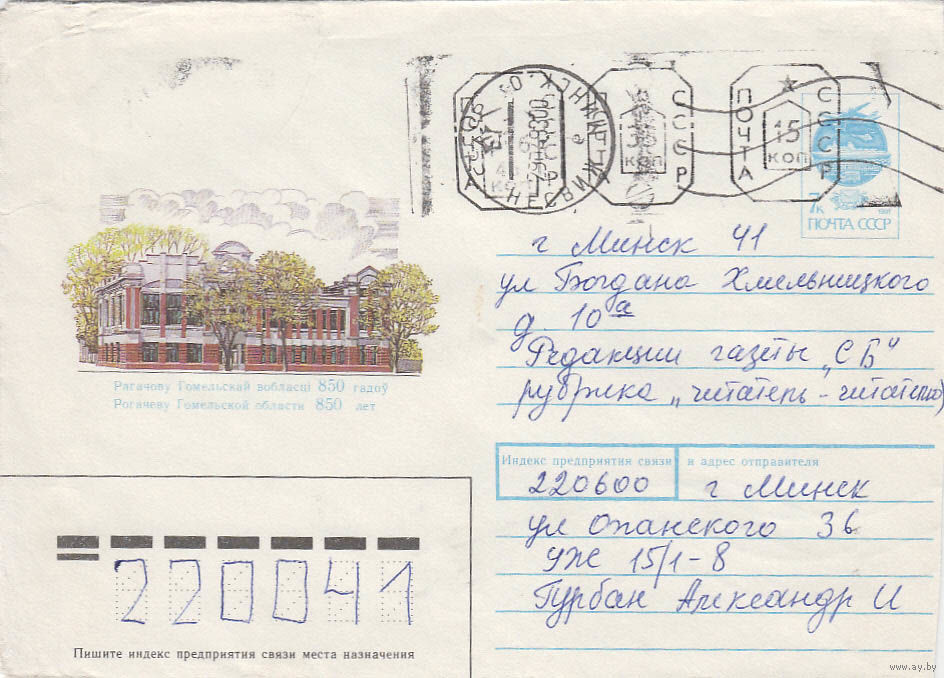 ПОЧТА
СССР
НЕСВИЖ
коп
СССР
ПОЧТА
15
коп
СССР
7к
1991
ПОЧТА СССР
г Минск 41
ул Богдана Хмельницкого
д. 10а
Редакции газеты „СБ"
рубрика „читатель - читателю"
Рагачову Гомельскай вобласці 850 гадоў
Рогачеву Гомельской области 850 лет
Индекс предприятия связи и адрес отправителя
220600 г Минск
ул Опанского 3в
УЖ 15/1-8
Гурбан Александр И
220041
Пишите индекс предприятия связи места назначения
www.ay.by